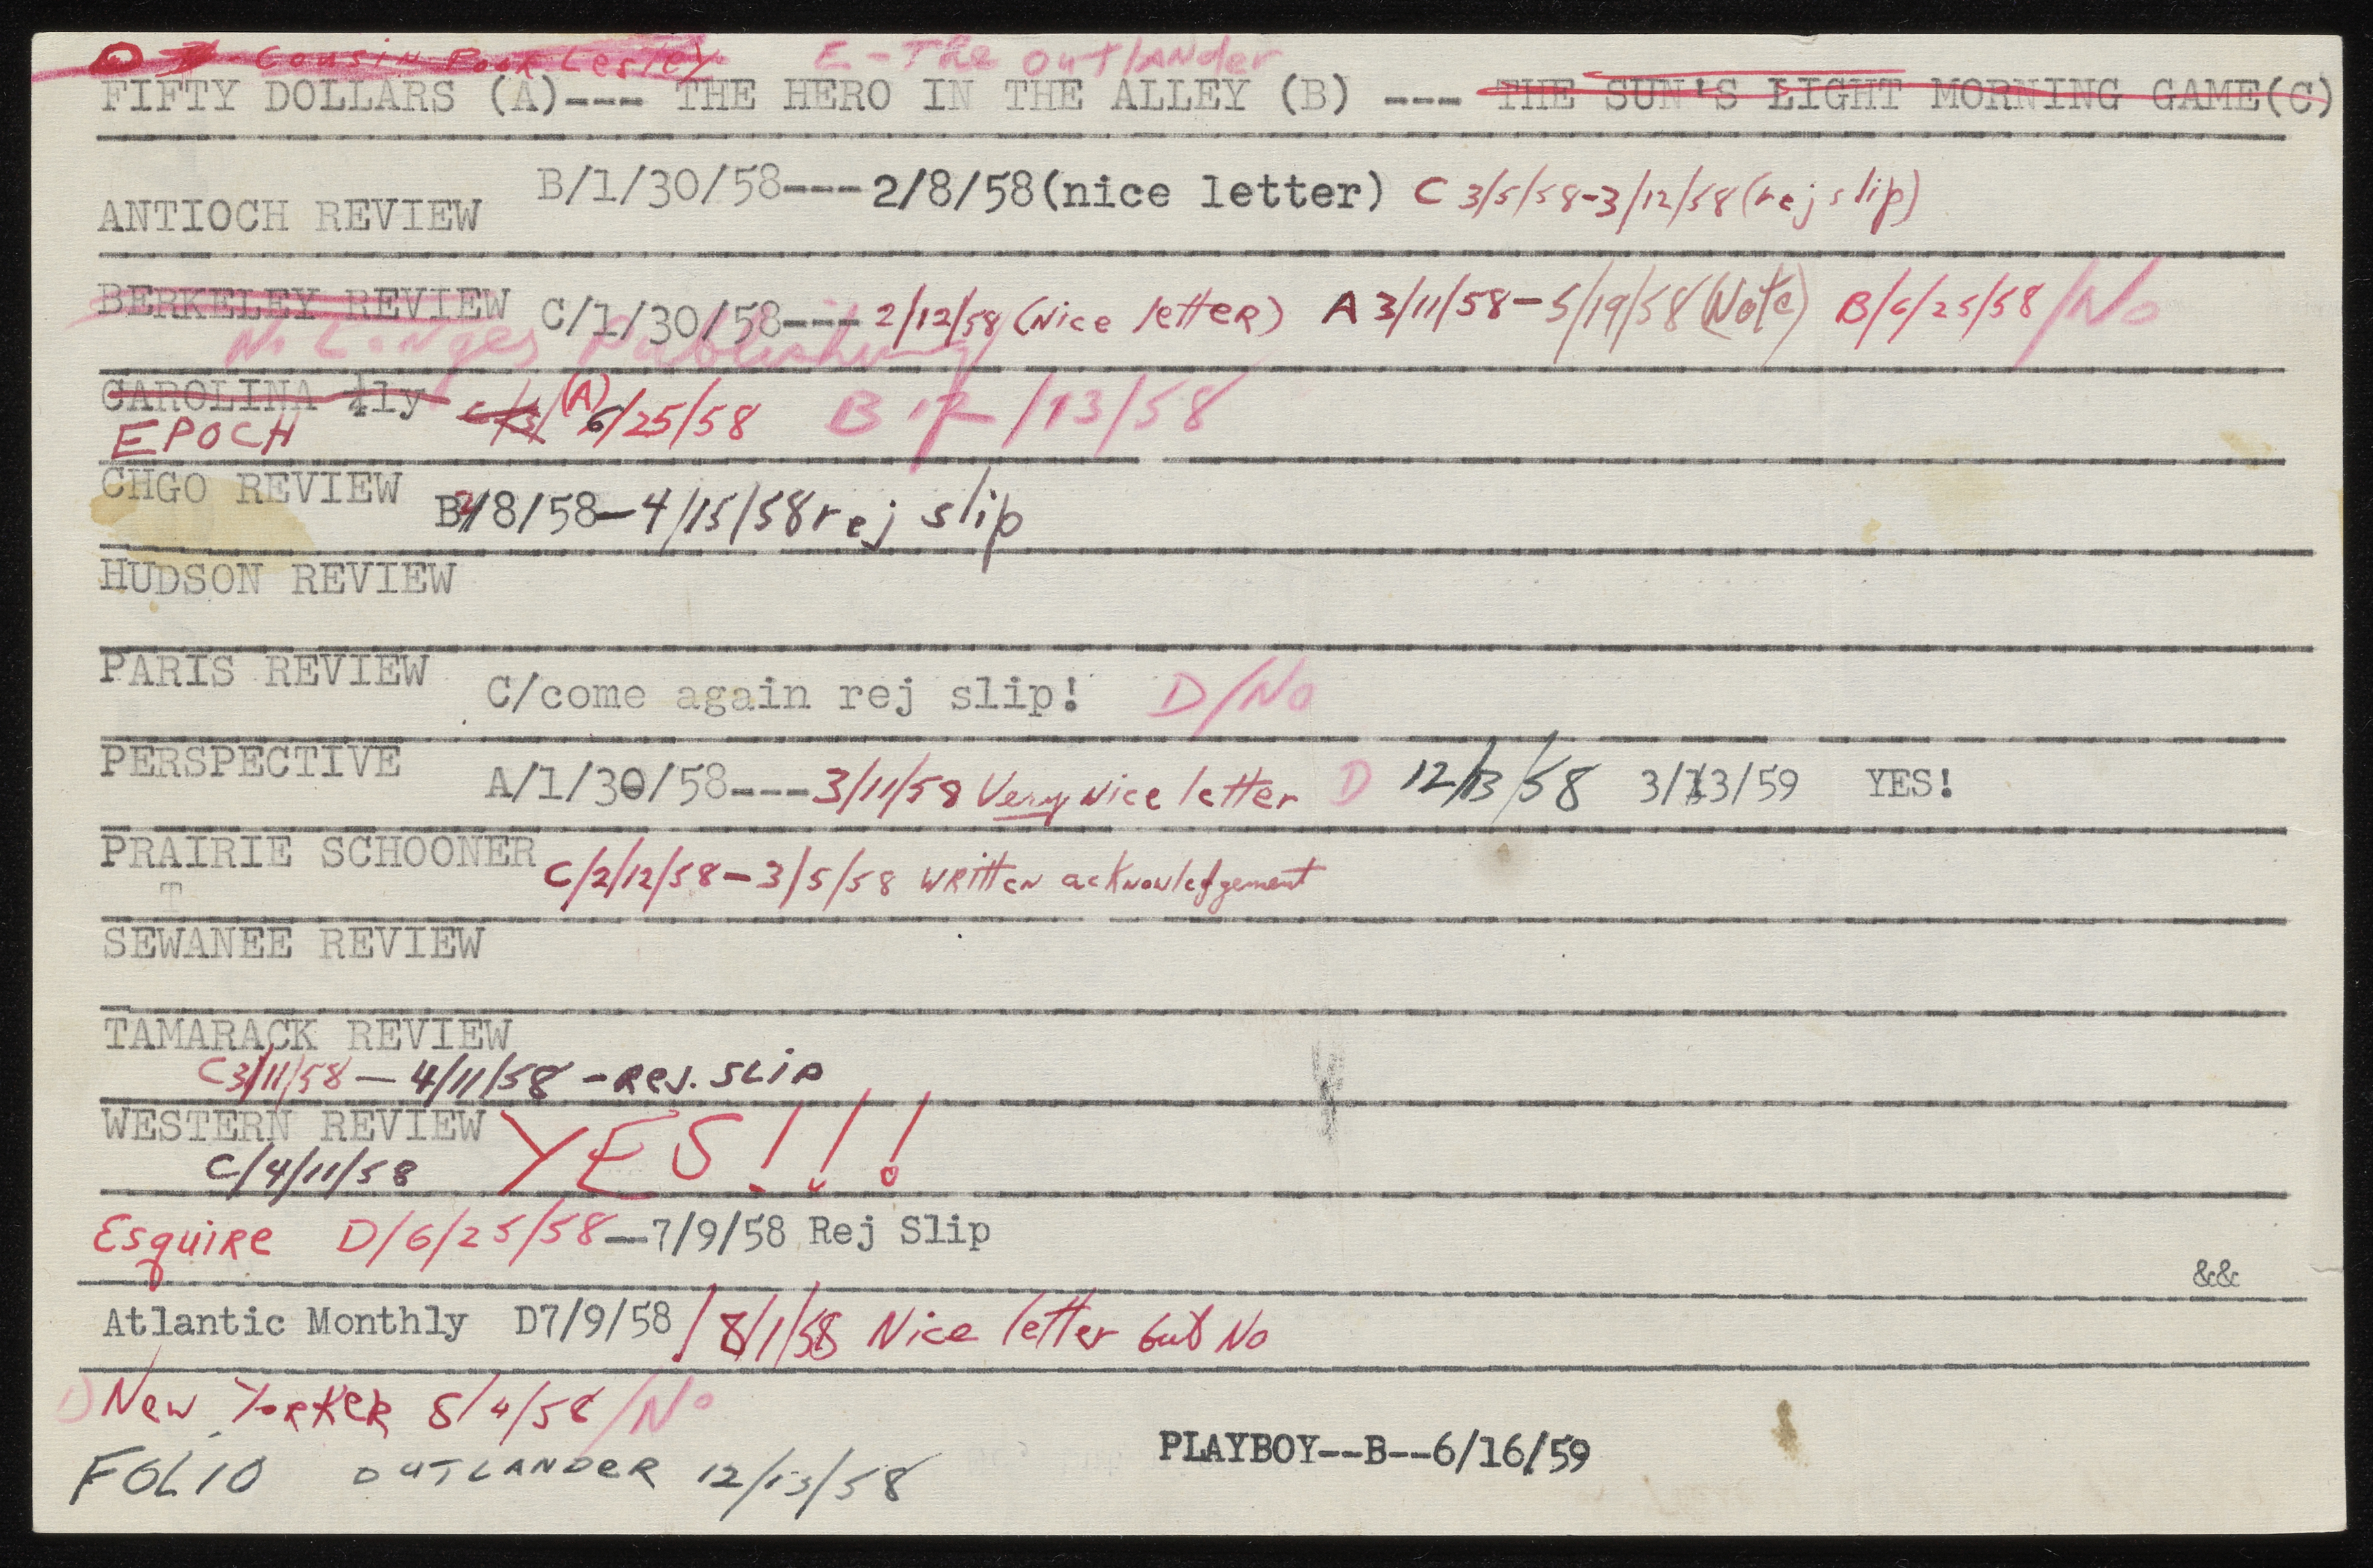 D - Cousin Poor Lesley E - The Outlander
FIFTY DOLLARS (A)--- THE HERO IN THE ALLEY (B) --- THE SUN'S LIGHT MORNING GAME(C)
ANTIOCH REVIEW B/1/30/58---2/8/58(nice letter) C 3/5/58-3/12/58(rej slip)
BERKELEY REVIEW C/1/30/58--- 2/12/58 (Nice letteR) A 3/11/58-5/19/58 (Note) B/6/25/58/No
No Longer Publishing
CAROLINA qly (A) 6/25/58 B 12/13/58
EPOCH
CHGO REVIEW B2/8/58-4/15/58 rej slip
HUDSON REVIEW
PARIS REVIEW C/come again rej slip! D/No
PERSPECTIVE A/1/30/58---3/11/58 Very Nice letter D 12/13/58 3/13/59 YES!
PRAIRIE SCHOONER C/2/12/58-3/5/58 WRitten acKnowledgement
T
SEWANEE REVIEW
TAMARACK REVIEW
C 3/11/58-4/11/58 - Rej. SLip
WESTERN REVIEW YES!!!
C/4/11/58
EsquiRe D/6/25/58-7/9/58 Rej Slip
&&
Atlantic Monthly D7/9/58/8/1/58 Nice letter but No
D New YorKeR 8/4/58/No
PLAYBOY--B--6/16/59
FOLIO OUTLANDeR 12/13/58